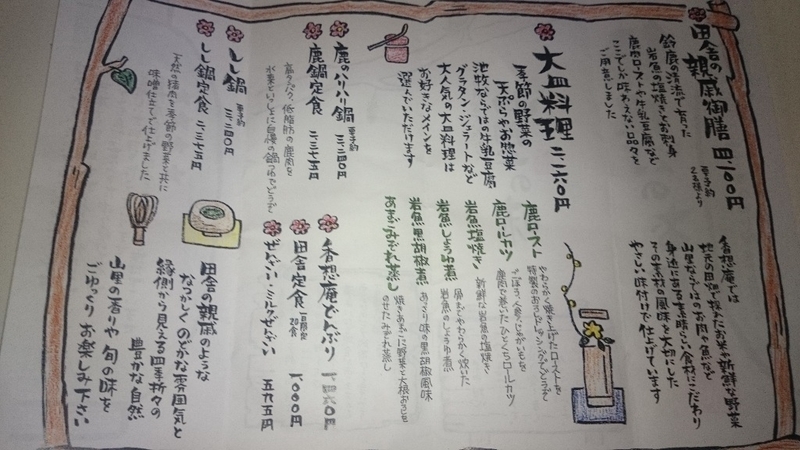 田舎の親戚御膳 四、一〇〇円
要予約
2名様より
鈴鹿の清流で育った
岩魚の塩焼きやお刺身
鹿肉ローストや牛乳豆腐など
ここでしか味わえない品々を
ご用意しました
香想庵では
地元の田畑で採れたお米や新鮮な野菜
山里ならではのお肉や魚など
身近にある素晴らしい食材にこだわり
その素材の風味を大切にした
やさしい味付けで仕上げています
大皿料理 二、一六〇円
季節の野菜の
天ぷらやお惣菜
池牧ならではの牛乳豆腐
グラタン・ジェラートなど
大人気の大皿料理は
お好きなメインを
選んでいただけます
鹿ロースト
やわらかく焼き上げたローストを
鹿ロールカツ
ごぼう、人参、じゃがいもを
鹿肉で巻いたひとくちロールカツ
岩魚塩焼き
新鮮な岩魚の塩焼き
岩魚しょうゆ煮
骨までやわらかく炊いた
岩魚のしょうゆ煮
岩魚黒胡椒煮
あっさり味の黒胡椒風味
あまごみぞれ蒸し
焼きあまごに野菜と大根おろし
のせた みぞれ蒸し
鹿のハリハリ鍋 要予約
鹿鍋定食
高タンパク、低脂肪の鹿肉を
しし鍋 要予約
しし鍋定食
天然の猪肉を季節の野菜と共に
味噌仕立てで仕上げました
香想庵どんぶり
田舎定食 一日限定20食 一、〇〇〇円
ぜんざい・ミルクぜんざい 五九五円
田舎の親戚のような
なつかしくのどかな雰囲気と
縁側から見える四季折々の
豊かな自然
山里の香りや旬の味を
ごゆっくり お楽しみ下さい